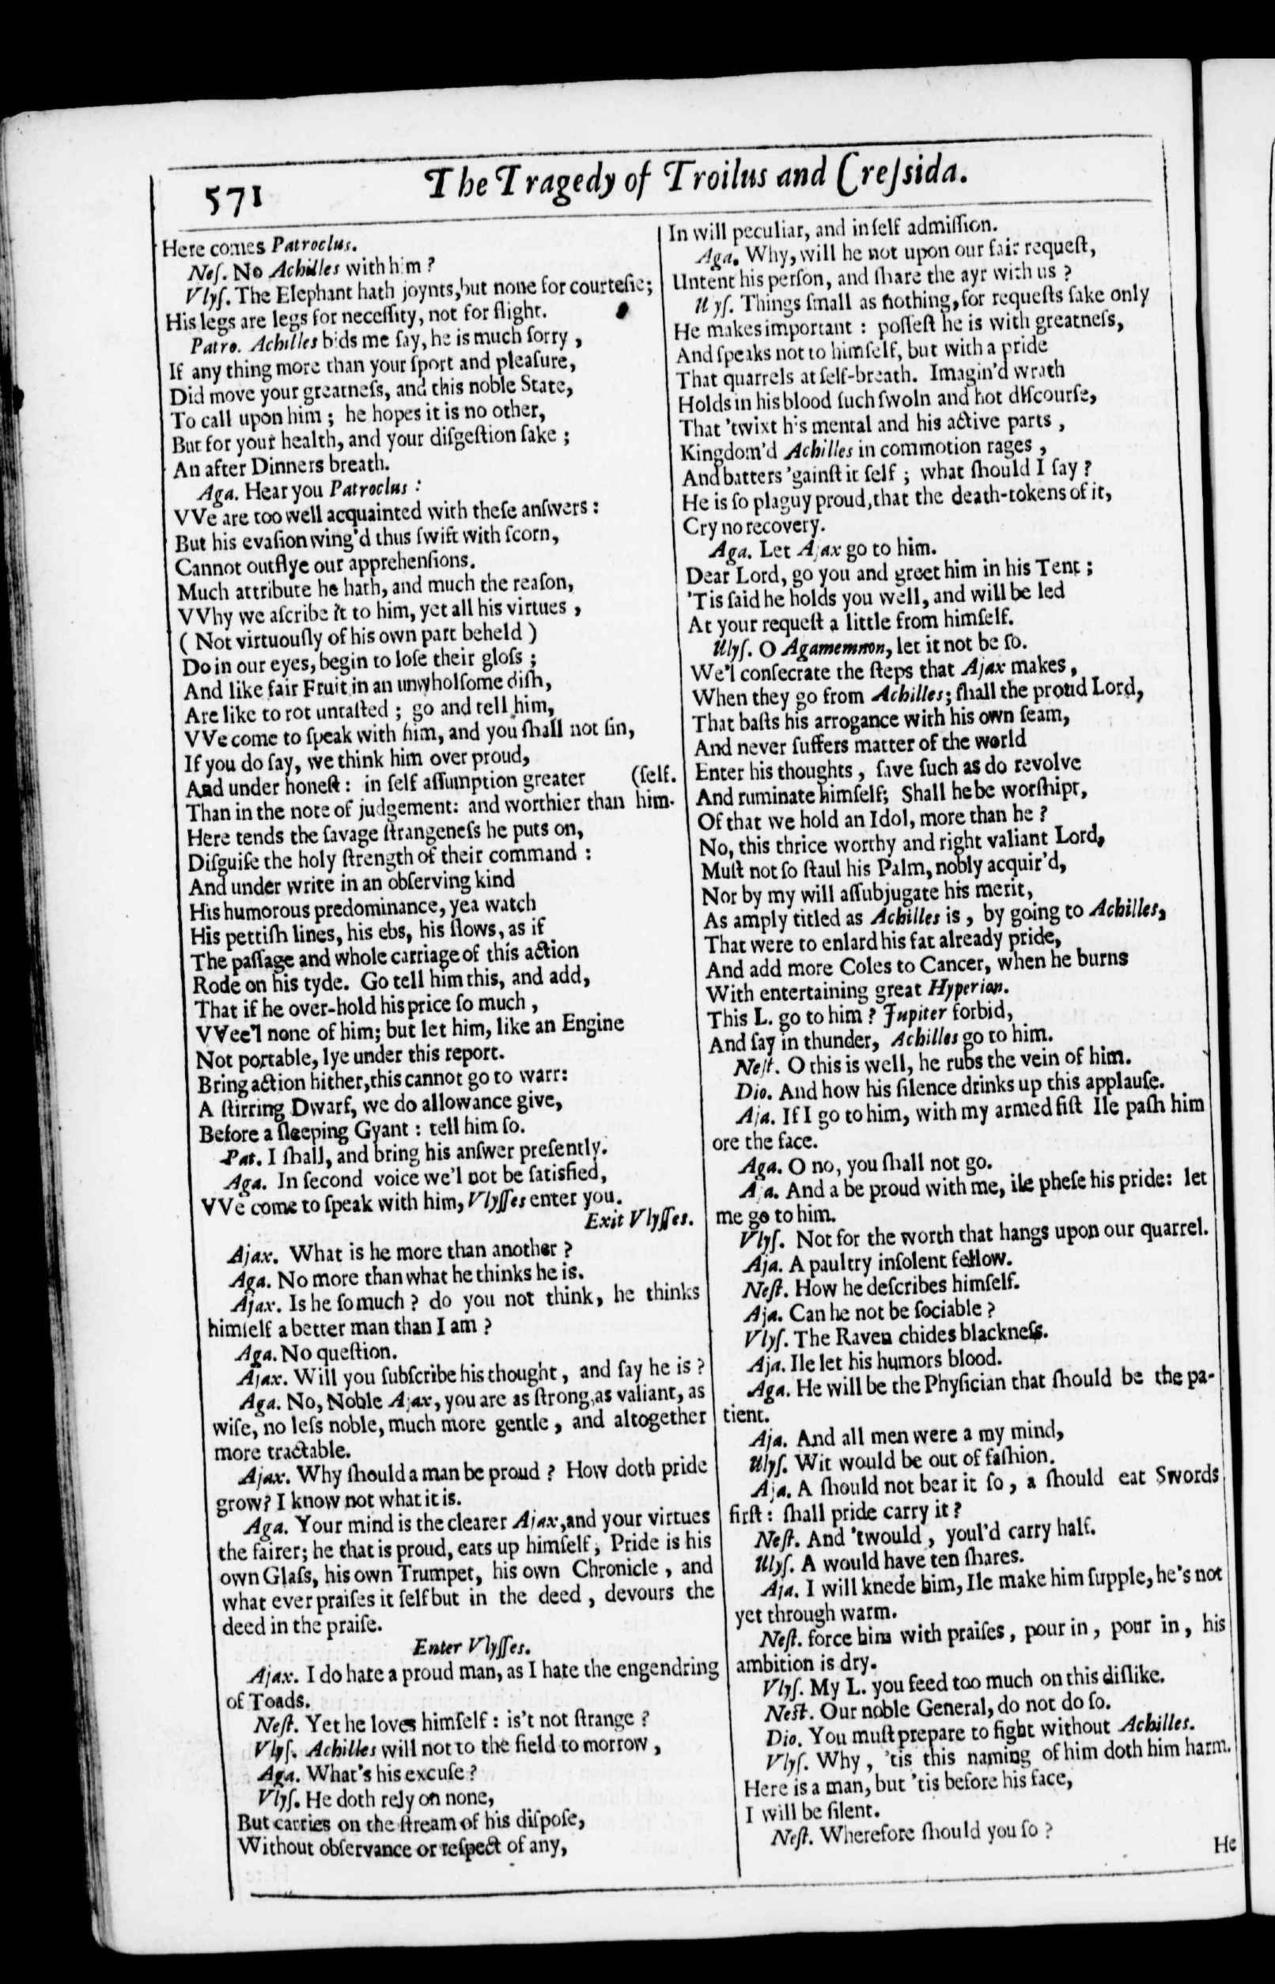 571
The Tragedy of Troilus and Creſsida.
Here comes Patroclus.
Neſ. No Achilles with him ?
Vlyſ. The Elephant hath joynts, but none for courteſie;
His legs are legs for neceſſity, not for flight.
Patro. Achilles bids me ſay, he is much ſorry ,
If any thing more than your ſport and pleaſure,
Did move your greatneſs, and this noble State,
To call upon him ; he hopes it is no other,
But for your health, and your diſgeſtion ſake ;
An after Dinners breath.
Aga. Hear you Patroclus :
VVe are too well acquainted with theſe anſwers :
But his evaſion wing'd thus ſwift with ſcorn,
Cannot outflye our apprehenſions.
Much attribute he hath, and much the reaſon,
VVhy we aſcribe it to him, yet all his virtues ,
( Not virtuouſly of his own part beheld )
Do in our eyes, begin to loſe their gloſs ;
And like fair Fruit in an unwholſome diſh,
Are like to rot untaſted ; go and tell him,
VVe come to ſpeak with him, and you ſhall not ſin,
If you do ſay, we think him over proud,
And under honeſt : in ſelf aſſumption greater (ſelf.
Than in the note of judgement: and worthier than him-
Here tends the ſavage ſtrangeneſs he puts on,
Diſguiſe the holy ſtrength of their command :
And under write in an obſerving kind
His humorous predominance, yea watch
His pettiſh lines, his ebs, his flows, as if
The paſſage and whole carriage of this action
Rode on his tyde. Go tell him this, and add,
That if he over-hold his price ſo much ,
VVee'l none of him; but let him, like an Engine
Not portable, lye under this report.
Bring action hither, this cannot go to warr:
A ſtirring Dwarf, we do allowance give,
Before a ſleeping Gyant : tell him ſo.
Pat. I ſhall, and bring his anſwer preſently.
Aga. In ſecond voice we'l not be ſatisfied,
VVe come to ſpeak with him, Vlyſſes enter you.
Exit Vlyſſes.
Ajax. What is he more than another ?
Aga. No more than what he thinks he is.
Ajax. Is he ſo much ? do you not think, he thinks
himſelf a better man than I am ?
Aga. No queſtion.
Ajax. Will you ſubſcribe his thought, and ſay he is ?
Aga. No, Noble Ajax, you are as ſtrong, as valiant, as
wiſe, no leſs noble, much more gentle , and altogether
more tractable.
Ajax. Why ſhould a man be proud ? How doth pride
grow? I know not what it is.
Aga. Your mind is the clearer Ajax, and your virtues
the fairer; he that is proud, eats up himſelf; Pride is his
own Glaſs, his own Trumpet, his own Chronicle , and
what ever praiſes it ſelf but in the deed , devours the
deed in the praiſe.
Enter Vlyſſes.
Ajax. I do hate a proud man, as I hate the engendring
of Toads.
Neſt. Yet he loves himſelf : is't not ſtrange ?
Vlyſ. Achilles will not to the field to morrow ,
Aga. What's his excuſe ?
Vlyſ. He doth rely on none,
But carries on the ſtream of his diſpoſe,
Without obſervance or reſpect of any,
In will peculiar, and in ſelf admiſſion.
Aga. Why, will he not upon our fair requeſt,
Untent his perſon, and ſhare the ayr with us ?
Ulyſ. Things ſmall as nothing, for requeſts ſake only
He makes important : poſſeſt he is with greatneſs,
And ſpeaks not to himſelf, but with a pride
That quarrels at ſelf-breath. Imagin'd wrath
Holds in his blood ſuch ſwoln and hot diſcourſe,
That 'twixt his mental and his active parts ,
Kingdom'd Achilles in commotion rages ,
And batters 'gainſt it ſelf ; what ſhould I ſay ?
He is ſo plaguy proud, that the death-tokens of it,
Cry no recovery.
Aga. Let Ajax go to him.
Dear Lord, go you and greet him in his Tent ;
'Tis ſaid he holds you well, and will be led
At your requeſt a little from himſelf.
Ulyſ. O Agamemnon, let it not be ſo.
We'l conſecrate the ſteps that Ajax makes ,
When they go from Achilles; ſhall the proud Lord,
That baſts his arrogance with his own ſeam,
And never ſuffers matter of the world
Enter his thoughts , ſave ſuch as do revolve
And ruminate himſelf; Shall he be worſhipt,
Of that we hold an Idol, more than he ?
No, this thrice worthy and right valiant Lord,
Muſt not ſo ſtaul his Palm, nobly acquir'd,
Nor by my will aſſubjugate his merit,
As amply titled as Achilles is , by going to Achilles,
That were to enlard his fat already pride,
And add more Coles to Cancer, when he burns
With entertaining great Hyperion.
This L. go to him ? Jupiter forbid,
And ſay in thunder, Achilles go to him.
Neſt. O this is well, he rubs the vein of him.
Dio. And how his ſilence drinks up this applauſe.
Aja. If I go to him, with my armed fiſt Ile paſh him
ore the face.
Aga. O no, you ſhall not go.
Aja. And a be proud with me, ile pheſe his pride: let
me go to him.
Vlyſ. Not for the worth that hangs upon our quarrel.
Aja. A paultry inſolent fellow.
Neſt. How he deſcribes himſelf.
Aja. Can he not be ſociable ?
Vlyſ. The Raven chides blackneſs.
Aja. Ile let his humors blood.
Aga. He will be the Phyſician that ſhould be the pa-
tient.
Aja. And all men were a my mind,
Ulyſ. Wit would be out of faſhion.
Aja. A ſhould not bear it ſo , a ſhould eat Swords
firſt : ſhall pride carry it ?
Neſt. And 'twould , youl'd carry half.
Ulyſ. A would have ten ſhares.
Aja. I will knede him, Ile make him ſupple, he's not
yet through warm.
Neſt. force him with praiſes , pour in , pour in , his
ambition is dry.
Vlyſ. My L. you feed too much on this diſlike.
Neſt. Our noble General, do not do ſo.
Dio. You muſt prepare to fight without Achilles.
Vlyſ. Why , 'tis this naming of him doth him harm.
Here is a man, but 'tis before his face,
I will be ſilent.
Neſt. Wherefore ſhould you ſo ?
He